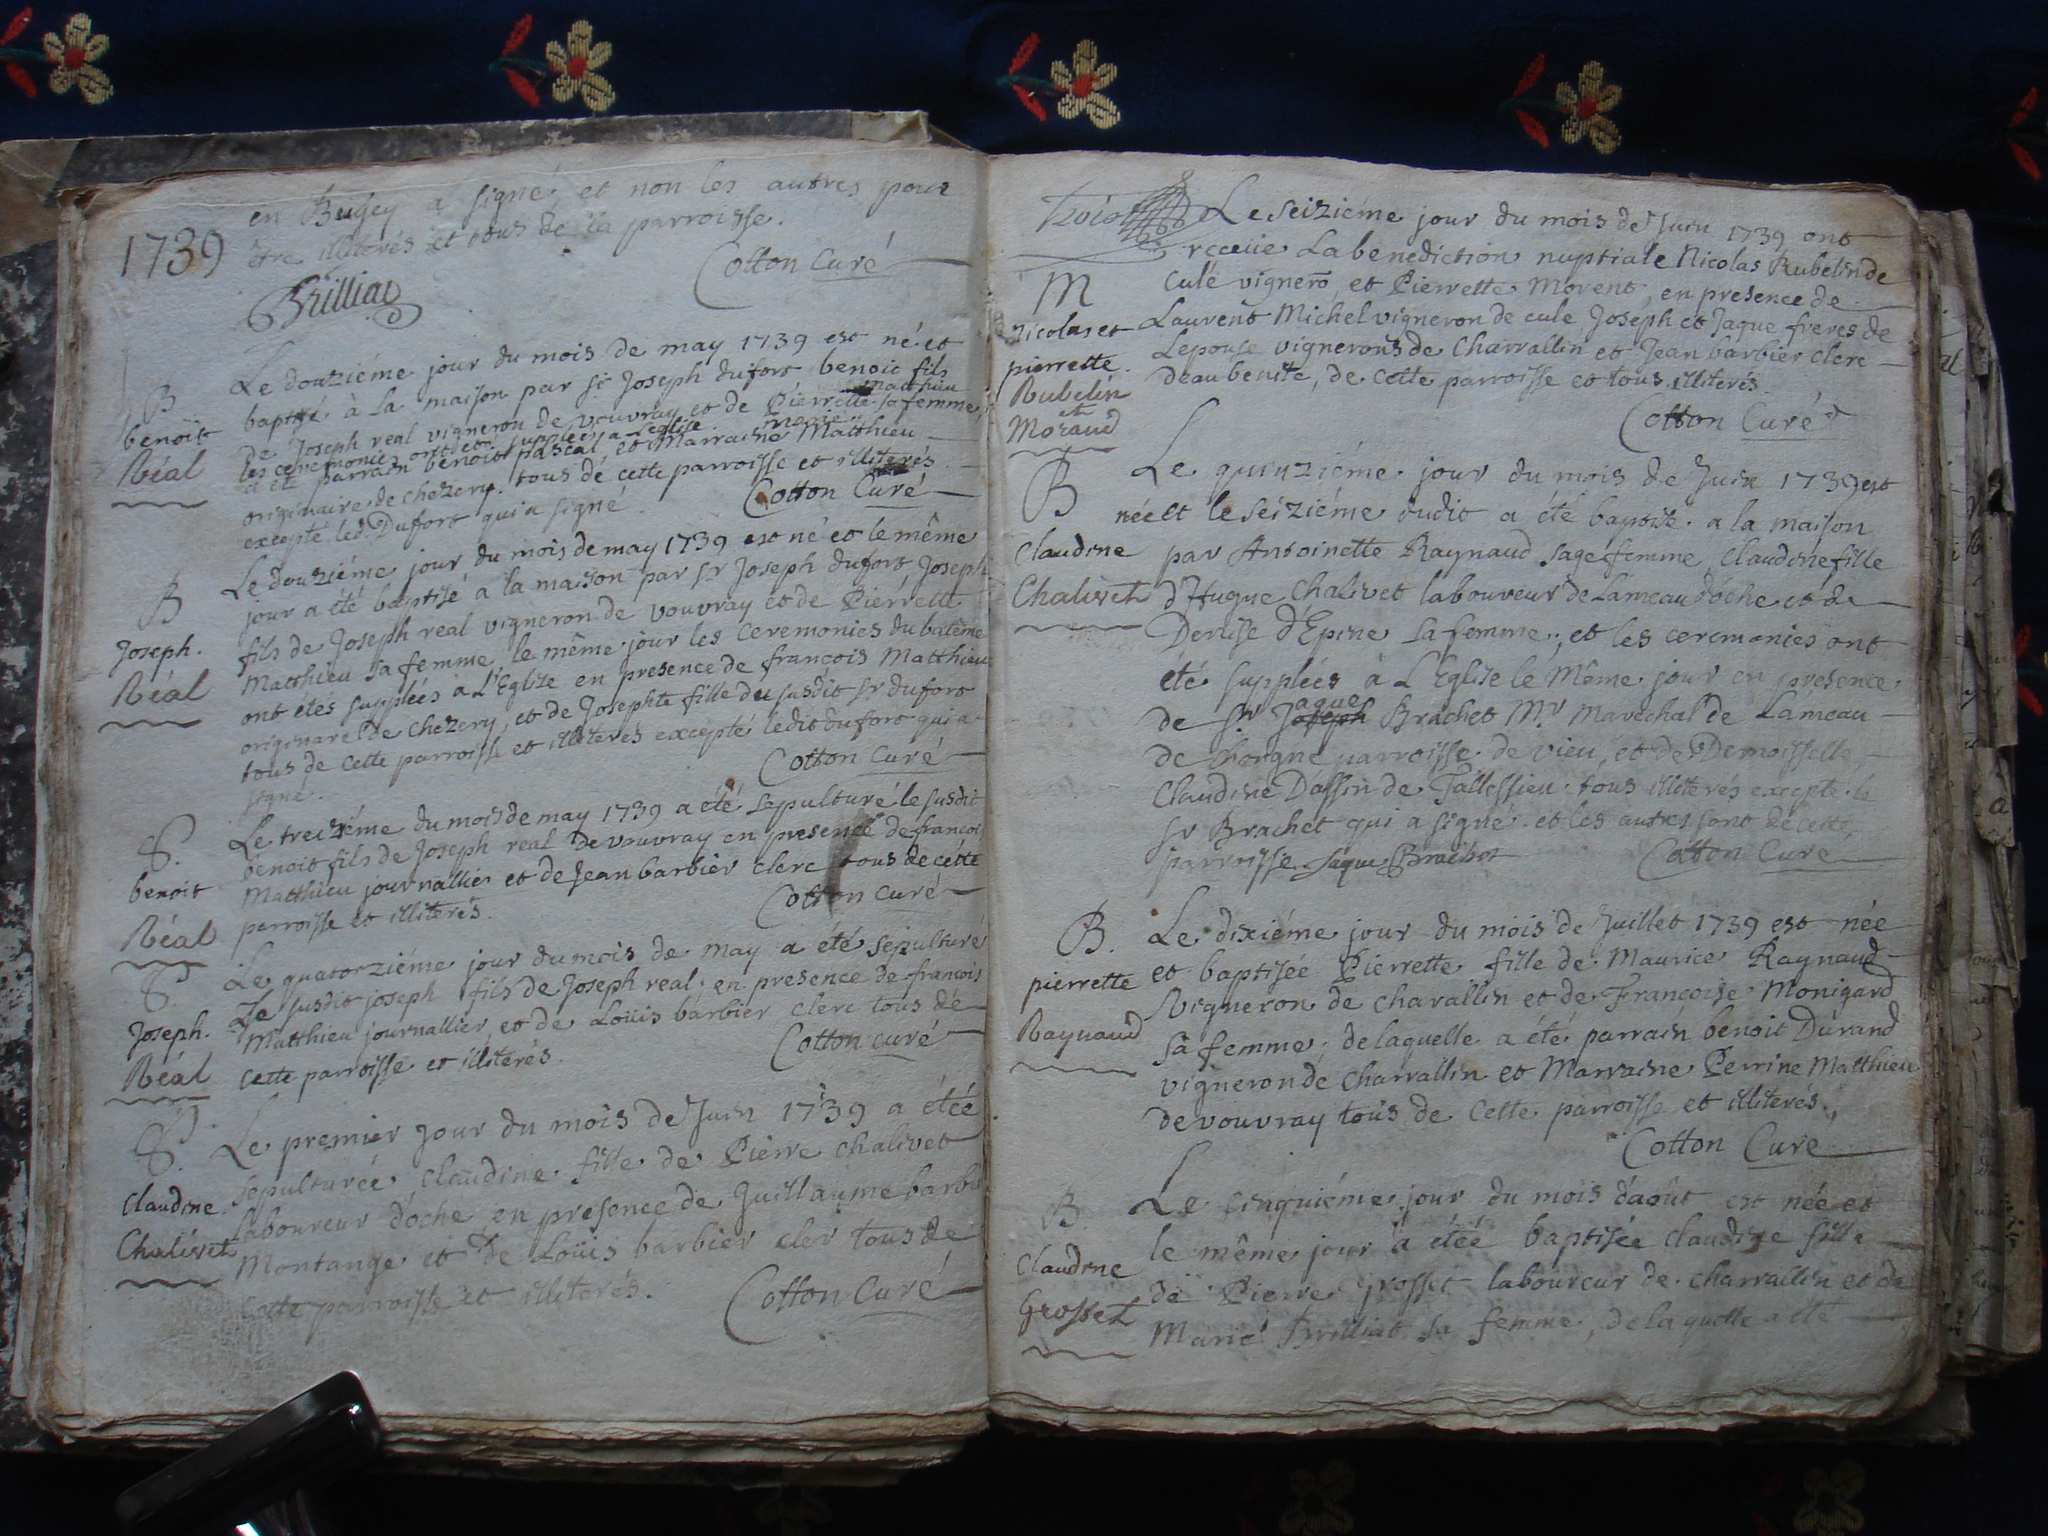 1739
en Bugey a signé, et non les autres pour
être illiterés et tous de la parroisse.
Cotton Curé
Brilliat
B
benoit
Réal
Le douziéme jour du mois de may 1739 est né et
baptisé à la maison par sr Joseph dufort benoit fils
de Joseph real vigneron de vouvray et de Pierrette matthieu sa femme
les ceremonies ont été supplées a Leglise
a été parrain benoit pascal, et Marraine marie Matthieu
originaire de chezery. tous de cette parroisse et illiterés
excepté led. Dufort qui a signé.
Cotton Curé
B
Joseph.
Réal
Le douziéme jour du mois de may 1739 est né et le même
jour a été baptisé à la maison par sr Joseph dufort, Joseph
fils de Joseph real vigneron de vouvray et de Pierrette
Matthieu sa femme, le même jour les ceremonies du batême
ont etés supplées à L'Eglise en presence de françois Matthieu
originare de Chezery, et de Josephte fille du susdit sr dufort
tous de cette parroisse et illiterés excepté ledit dufort qui a
signé.
Cotton Curé
S.
benoit
Réal
Le treiziéme du mois de may 1739 a été sepulturé le susdit
benoit fils de Joseph real de vouvray en presence de francois
Matthieu journallier et de Jean barbier clerc tous de cette
parroisse et illiterés.
Cotton Curé
S.
Joseph.
Réal
Le quatorziéme jour du mois de may a été sepulturé
Le susdit joseph fils de Joseph real, en presence de francois
Matthieu journallier, et de Loüis barbier clerc tous de
cette parroisse et illiterés.
Cotton curé
S.
Claudine.
Chalivet
Le premier jour du mois de Juin 1739 a étée
sepulturée Claudine fille de Pierre Chalivet
laboureur d'oche en presence de Juillaume barbie
Montange et de Loüis barbier cler tous de
cette parroisse et illiterés.
Cotton Curé
trois
M
Nicolas et
pierrette.
Rubelin
et
Moraud
Le seiziéme jour du mois de Juin 1739 ont
receue La benediction nuptiale Nicolas Rubelin de
culé vignero, et Pierrette Morent, en presence de
Laurent Michel vigneron de cule Joseph et Jaque freres de
Lepouse vignerons de Charrallin et Jean barbier clerc
deau benite, de cette parroisse et tous illiterés.
Cotton Curé
B
Claudine
Chalivet
Le quinziéme jour du mois de Juin 1739 est
née et le séiziéme dudit a été baptisé a la maison
par Antoinette Raynaud sage femme, Claudine fille
d'Hugue Chalivet labouveur de Lameau d'oche et de
Denise d'Epine sa femme; et les ceremonies ont
été supplées à L'Eglise le Même jour en presence
de Sr Jaque Brachet Mr Marechal de Lameau
de Chorgne parroisse de vieu, et de Demoisselle
Claudine Dassin de Tallissieu tous illiterés excepté le
sr Brachet qui a signé et les autres sont de cette
parroisse. Jaque Brachet
Cotton Curé
B.
pierrette
Raynaud
Le dixiéme jour du mois de Juillet 1739 est née
et baptisée Pierrette fille de Maurice Raynaud
Vigneron de charallin et de Françoise Monigard
sa femme, de laquelle a été parrain benoit Durand
vigneron de Charrallin et Marraine Perrine Matthieu
de vouvray tous de Cette parroisse et illiterés.
Cotton Curé
B.
Claudine
Grosset
Le cinquiéme jour du mois d'août est née et
le même jour a étée baptisée Claudine fille
de Pierre Grosset laboureur de charrallin et de
Marie Brilliat sa femme, de laquelle a été